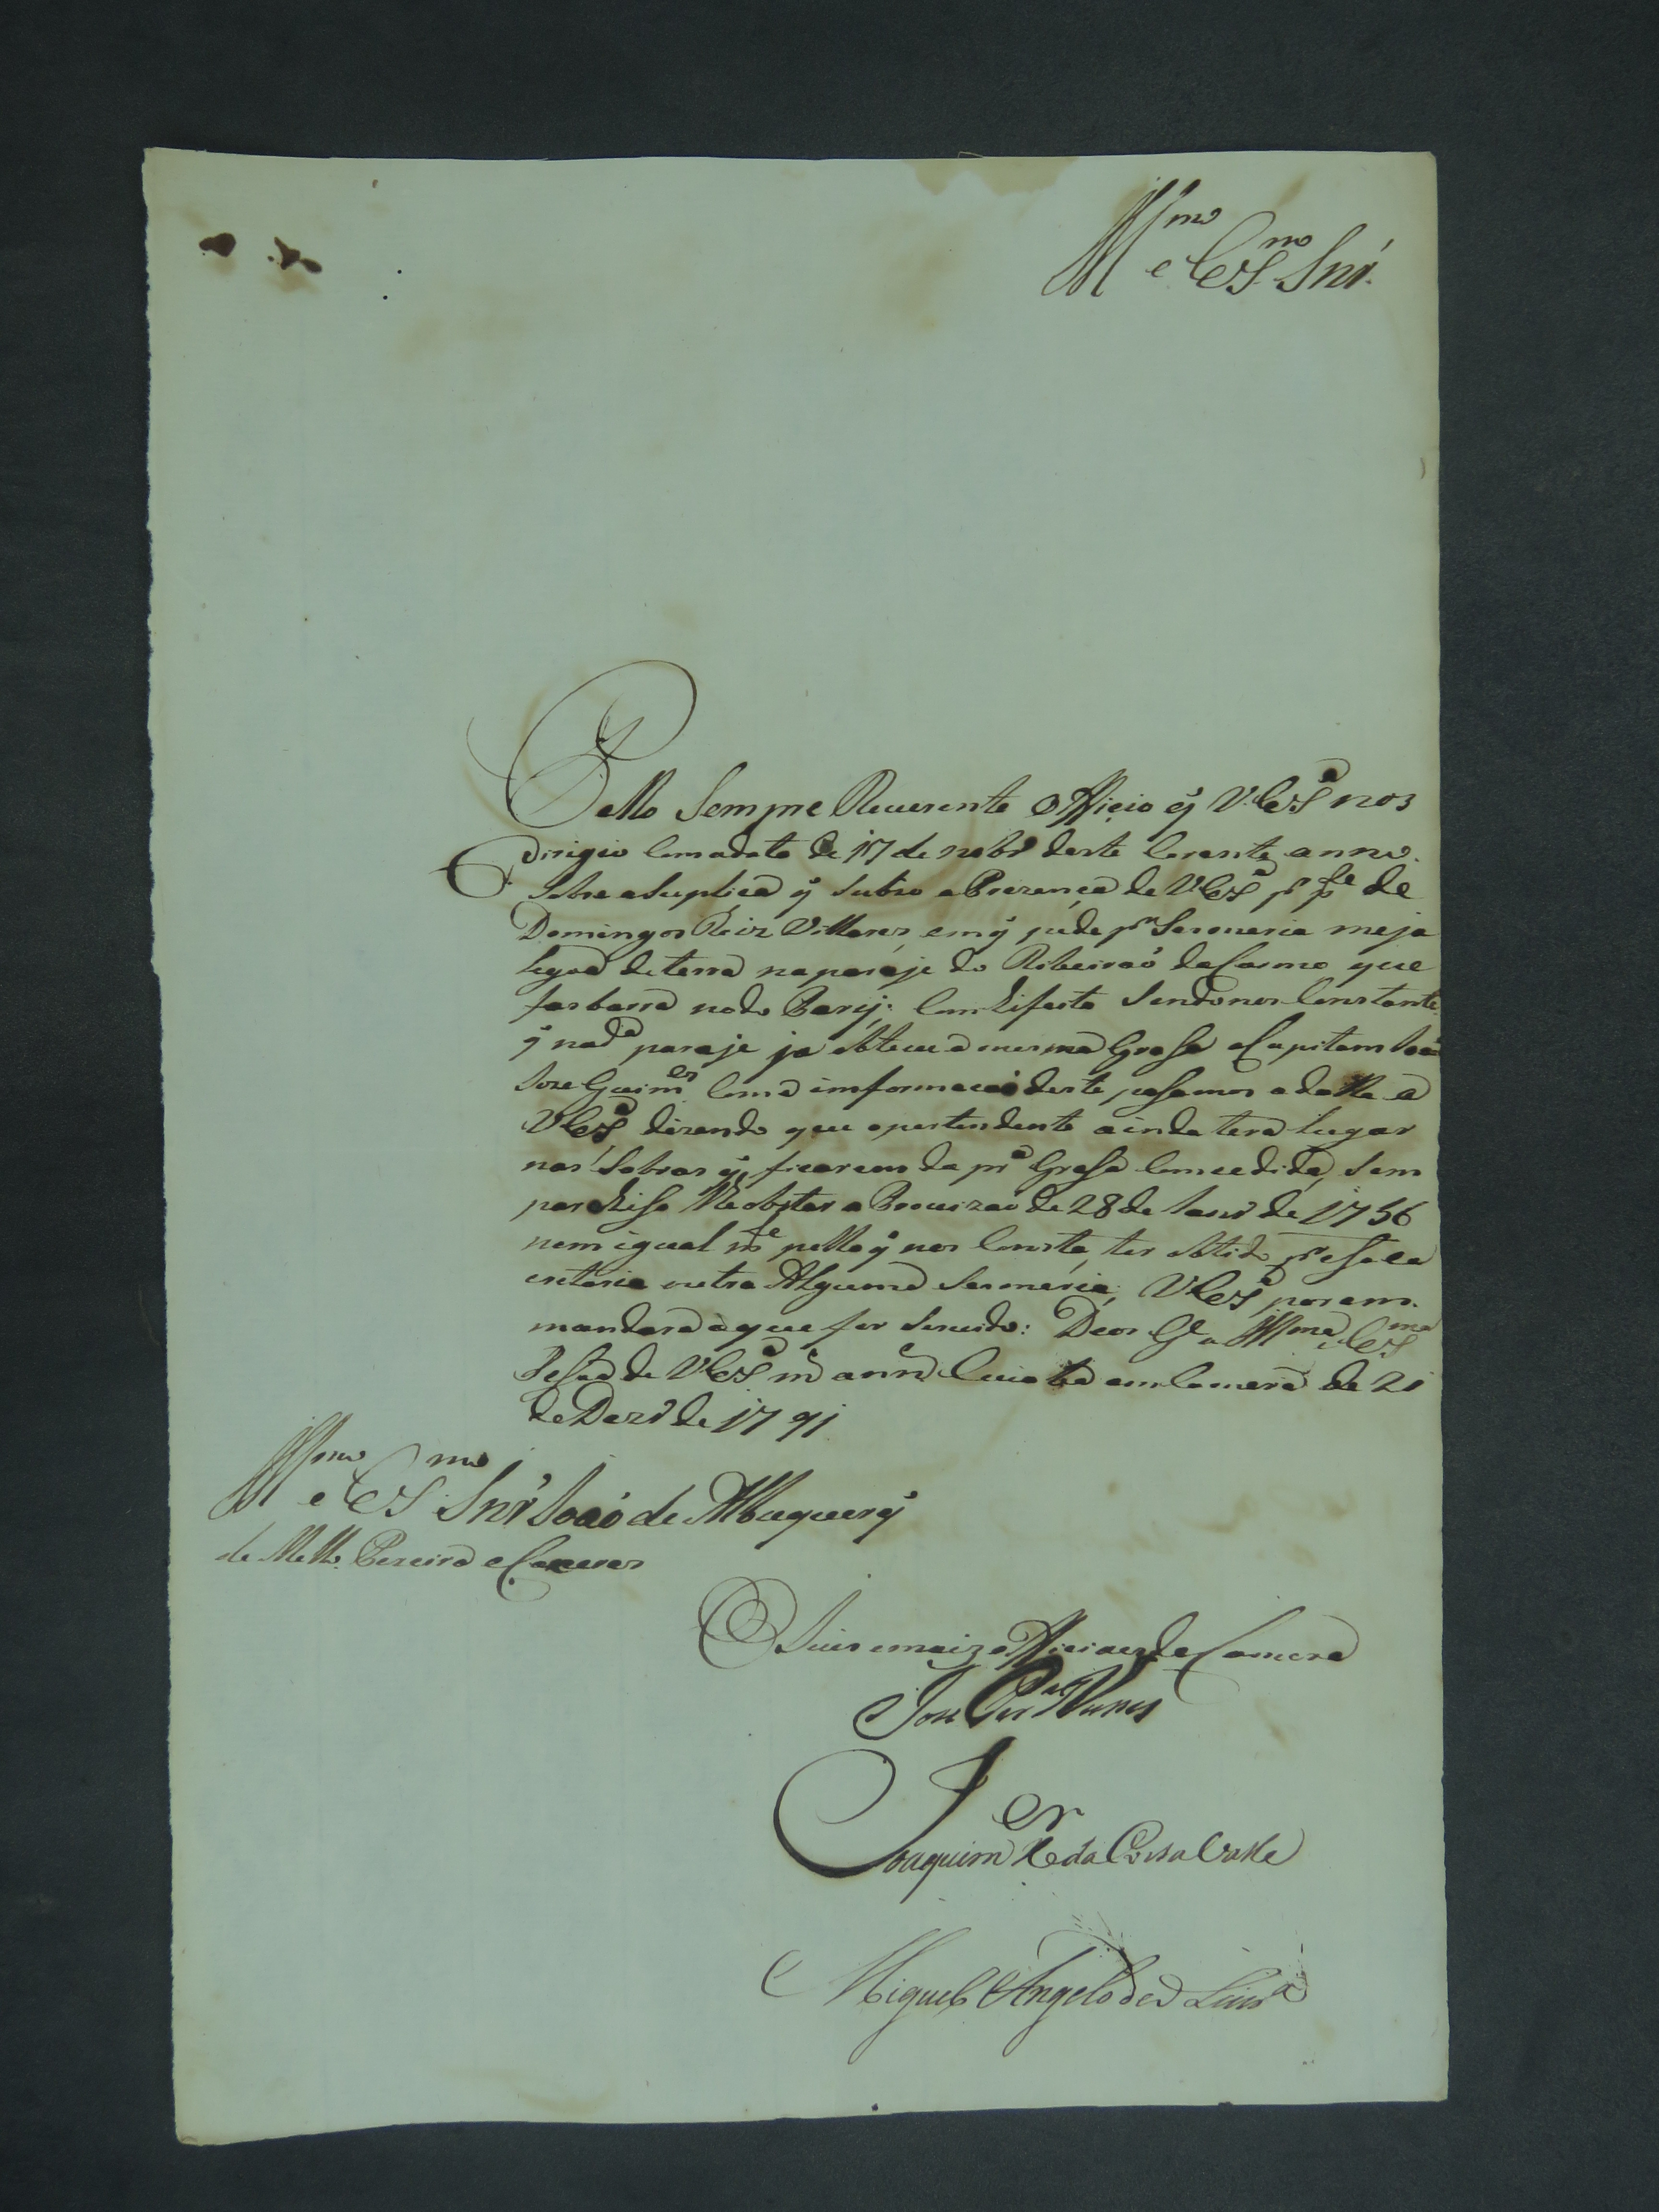 Illmo e Exmo Snr.
Pello Sempre Reverente Officio q̃ V. Exa nos
dirigio com adata de 17 de nobr.o deste Corente anno.
Sobre a Suplica q̃ Subio a Prezença de V. Exa pr pte de
Domingos Reiz Villares, em q̃ pede pr Sesmeria meja
legoa de terra na paraje do Ribeirão do Carmo que
fas barra no do Pary; Com Rifesta Sendonos Constante
q̃ na da paraje ja obteve a mesma Grasa o Capitam João
Joze Guimes Com a imformacaõ deste, pasamos a dalla a
V Exa dizendo que o pertendente ainda tera lugar
nas Sobras q̃ ficarem da pra Grasa Comcedida, Sem
par Riso lhe obstar a Provizaõ de 28 de Janr.o de 1756
nem igual mte pello q̃ nos Consta, ter obtido pr esa ca
outra Alguma Sesmeria; V Exa porem.
mandara o que for Servido: Deos Ge a Illma e Exma
Pesoa de V Exa ms anns Cuiaba em Camera de 21
de Dezr.o de 1791
Illmo e Exmo Snr João de Albuquerq̃
de Mello Pereira e Caceres
O Juis e maiz Officiaes da Camera
Joze Nunes
Joaquim da Costa Valle
Miguel Angelo de Olivra